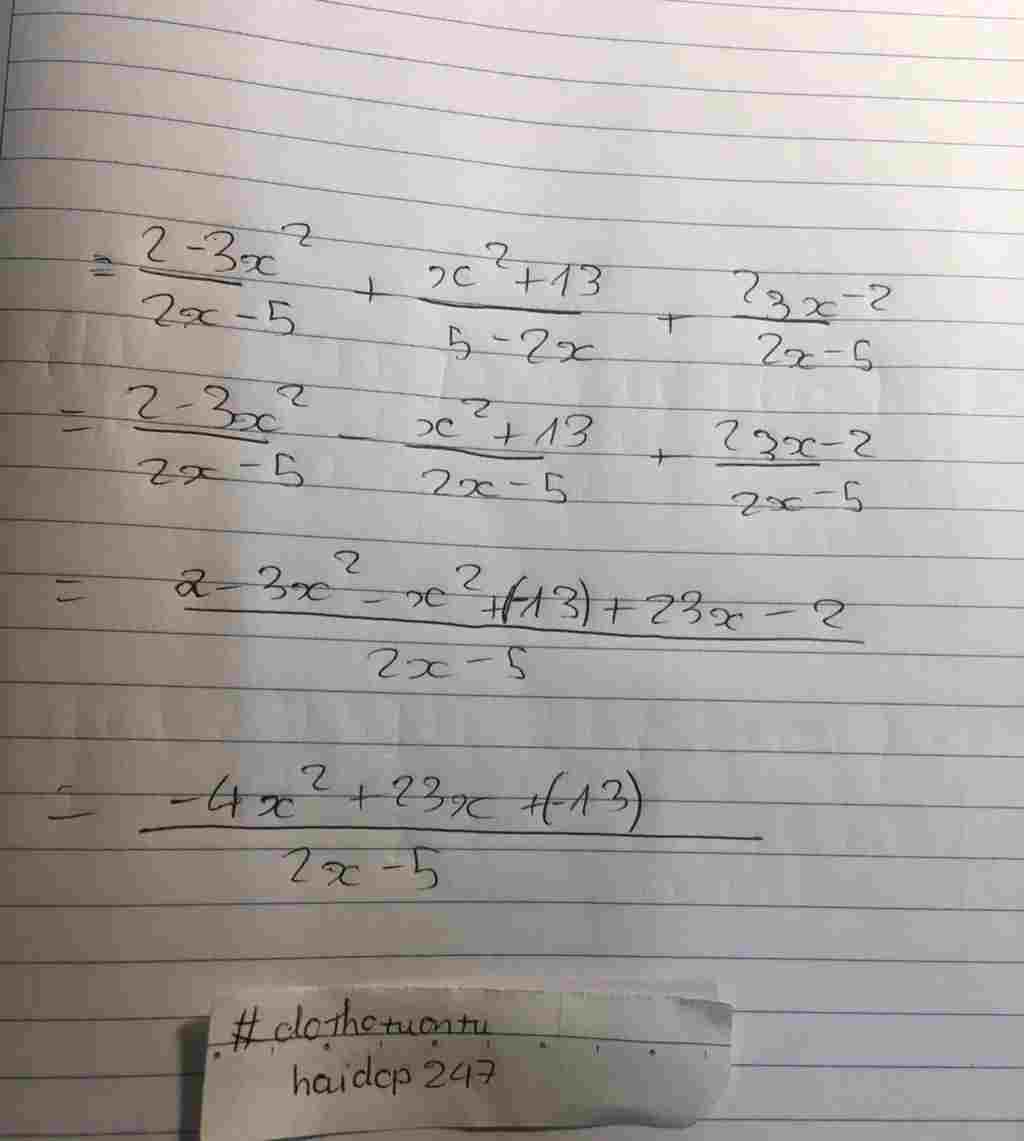 = \frac{2-3x^2}{2x-5} + \frac{x^2+13}{5-2x} + \frac{23x-2}{2x-5}
= \frac{2-3x^2}{2x-5} - \frac{x^2+13}{2x-5} + \frac{23x-2}{2x-5}
= \frac{2-3x^2-x^2+(-13)+23x-2}{2x-5}
= \frac{-4x^2+23x+(-13)}{2x-5}
#dothetuontu
haidcp 247